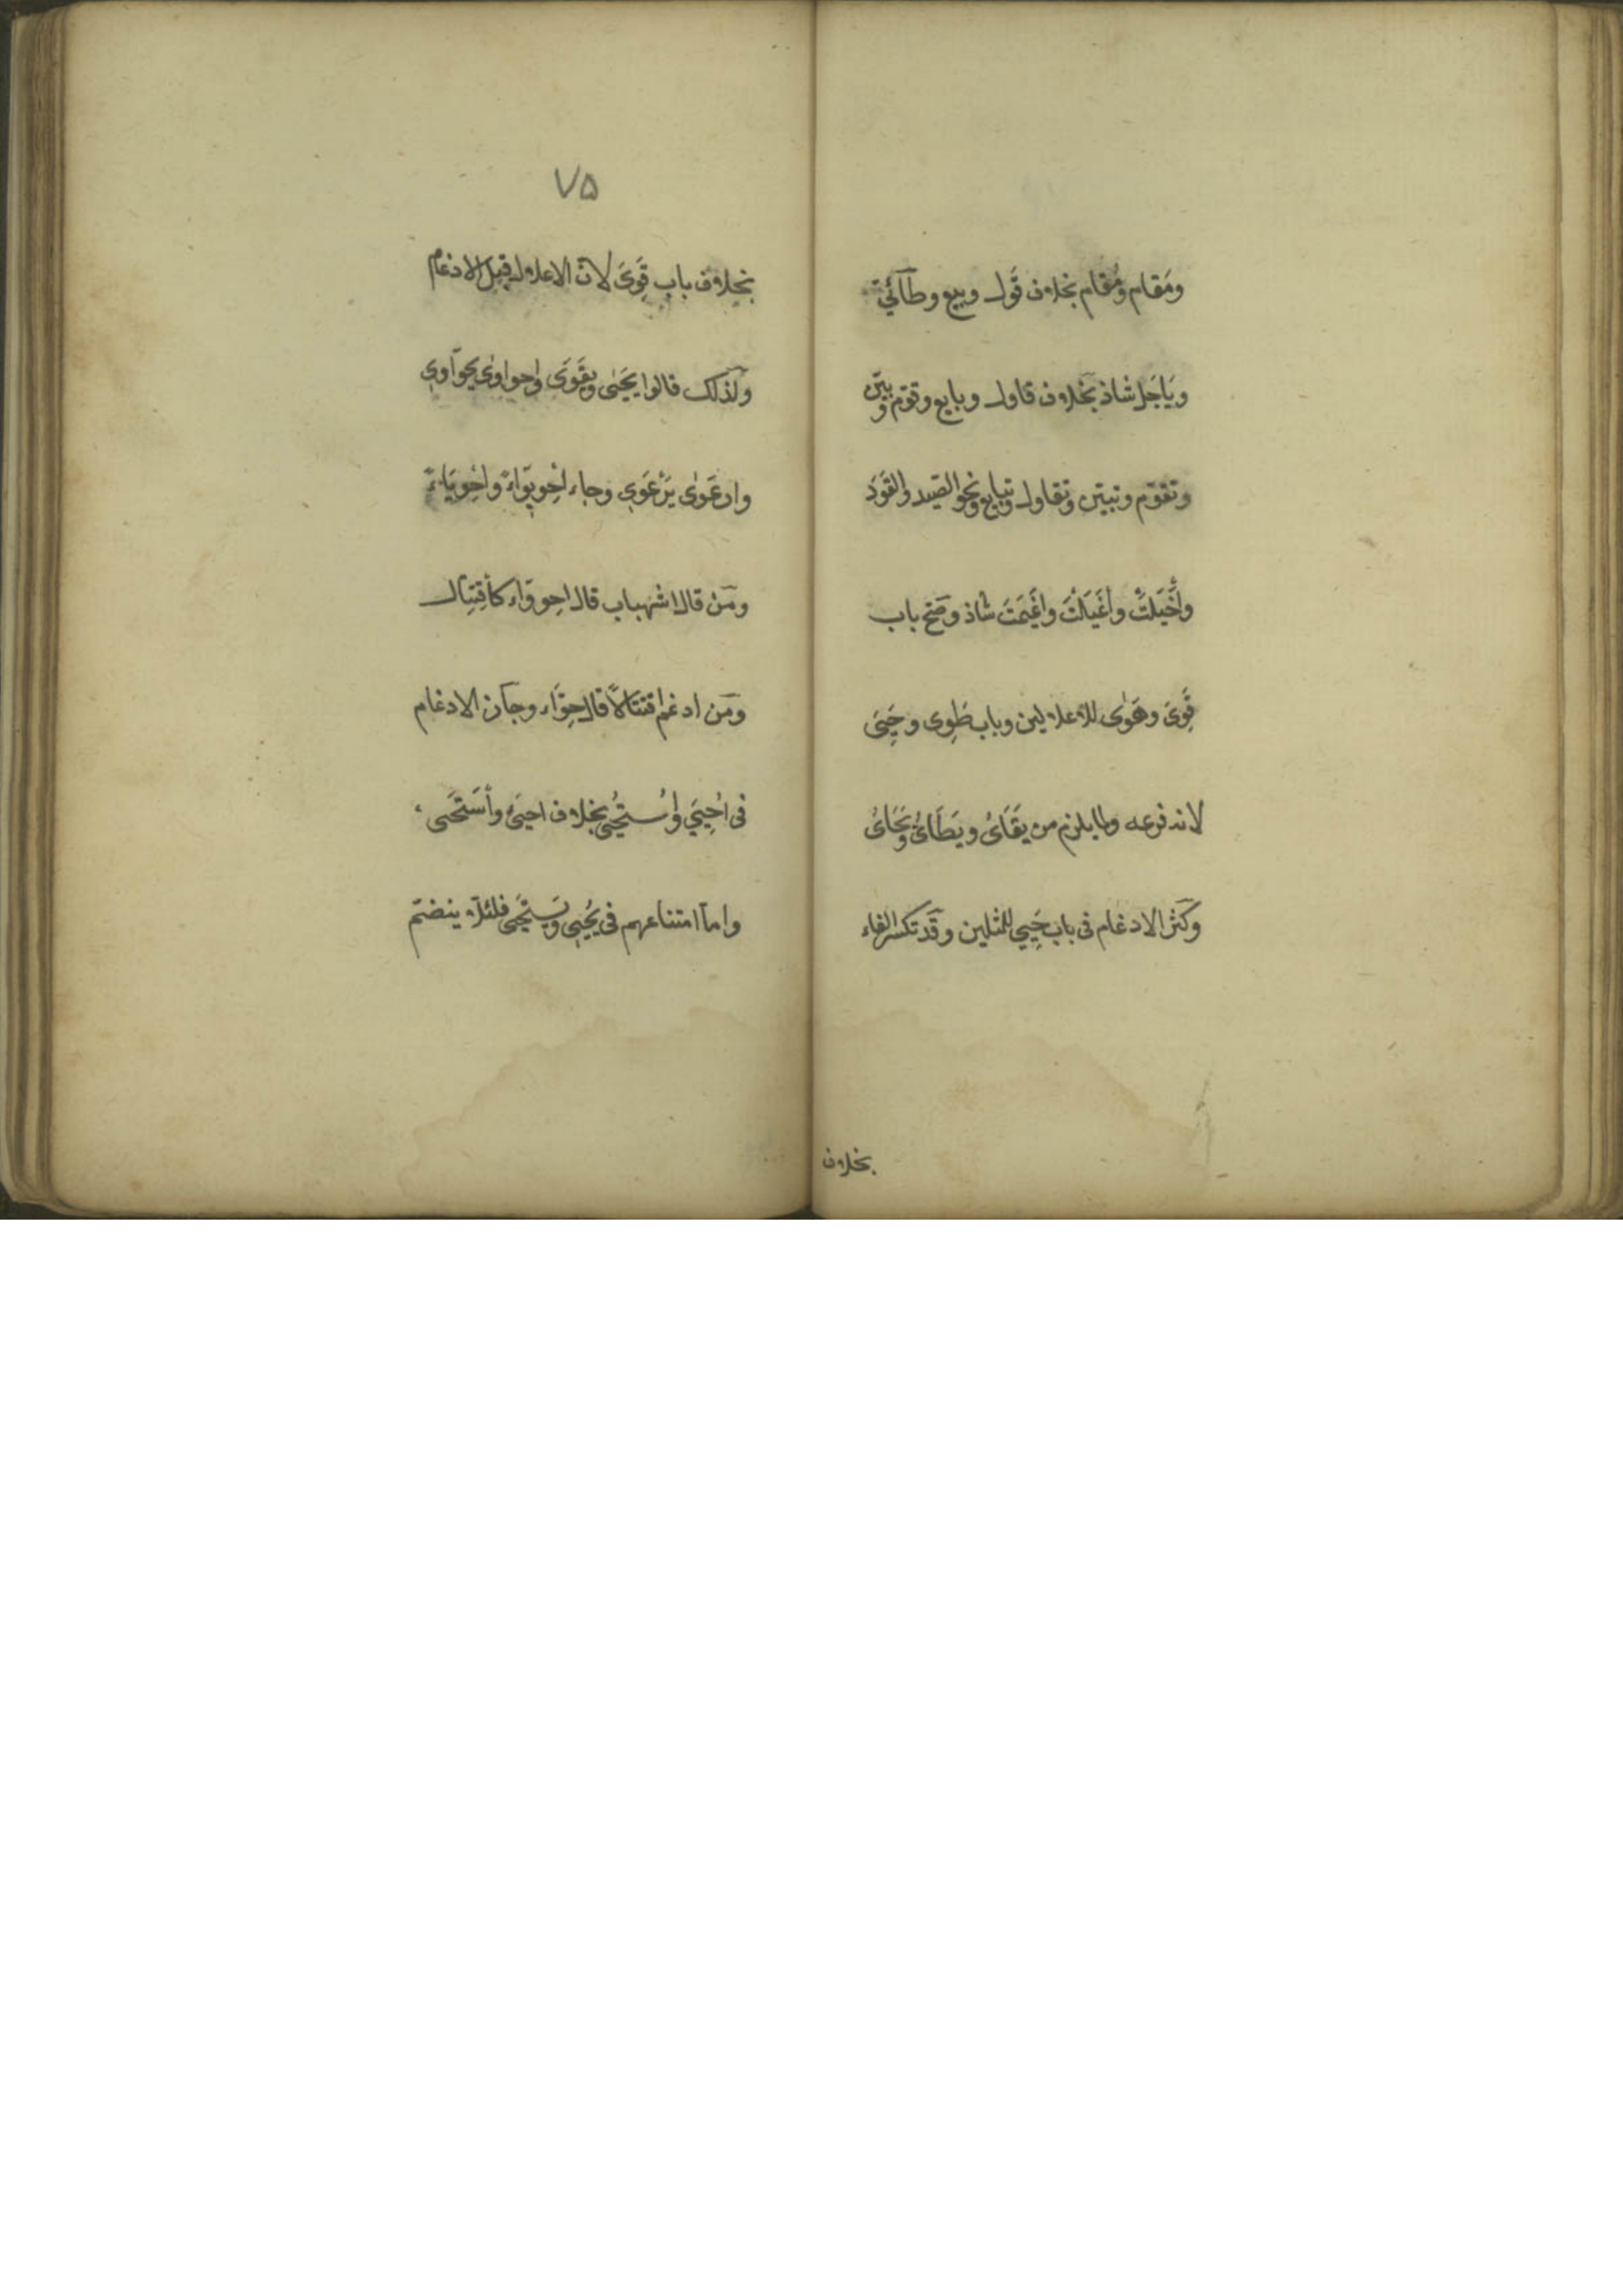 ومَقام ومُقام بخلاف قَول وبيع وطآئيّ
ويَاجَل شاذ بخلاف قاول وبايع وقوّم وبيّن
وتقوّم وتبيّن وتقاول وتبايع ونحو الصَيد والقَوَد
وأَخْيَلَتْ وأَغْيَلَتْ وأَغْيَمَتْ شاذ وصَحّ باب
قَوِىَ وهَوٰى للاعلالين وباب طَوِى وحَيِىَ
لانه فرعه ولما يلزم من يَقَاىُ ويَطَاىُ ويَحَاىُ
وكثر الادغام فى باب حَيِيَ للمثلين وقد تكسر الفاء
بخلاف
٧۵
بخلاف باب قَوِىَ لانّ الاعلال قبل الادغام
ولذلك قالوا يَحْيٰى ويَقْوَى واحواوٰى يحوَاوِي
وارعَوٰى يَرْعَوِى وجاء احْوِيوَاءً واحْوِيَّاءً
ومَنْ قال اشهباب قال احوِوَاء كاقتِتال
ومَن ادغم اقتتالاً قال حِوَّاء وجاز الادغام
فى اُحْيِيَ واُسْتُحْيِىَ بخلاف احيَى واسْتَحْيَى
واما امتناعهم فى يُحْيِى ويَسْتَحْيِى فلئلا ينضمّ